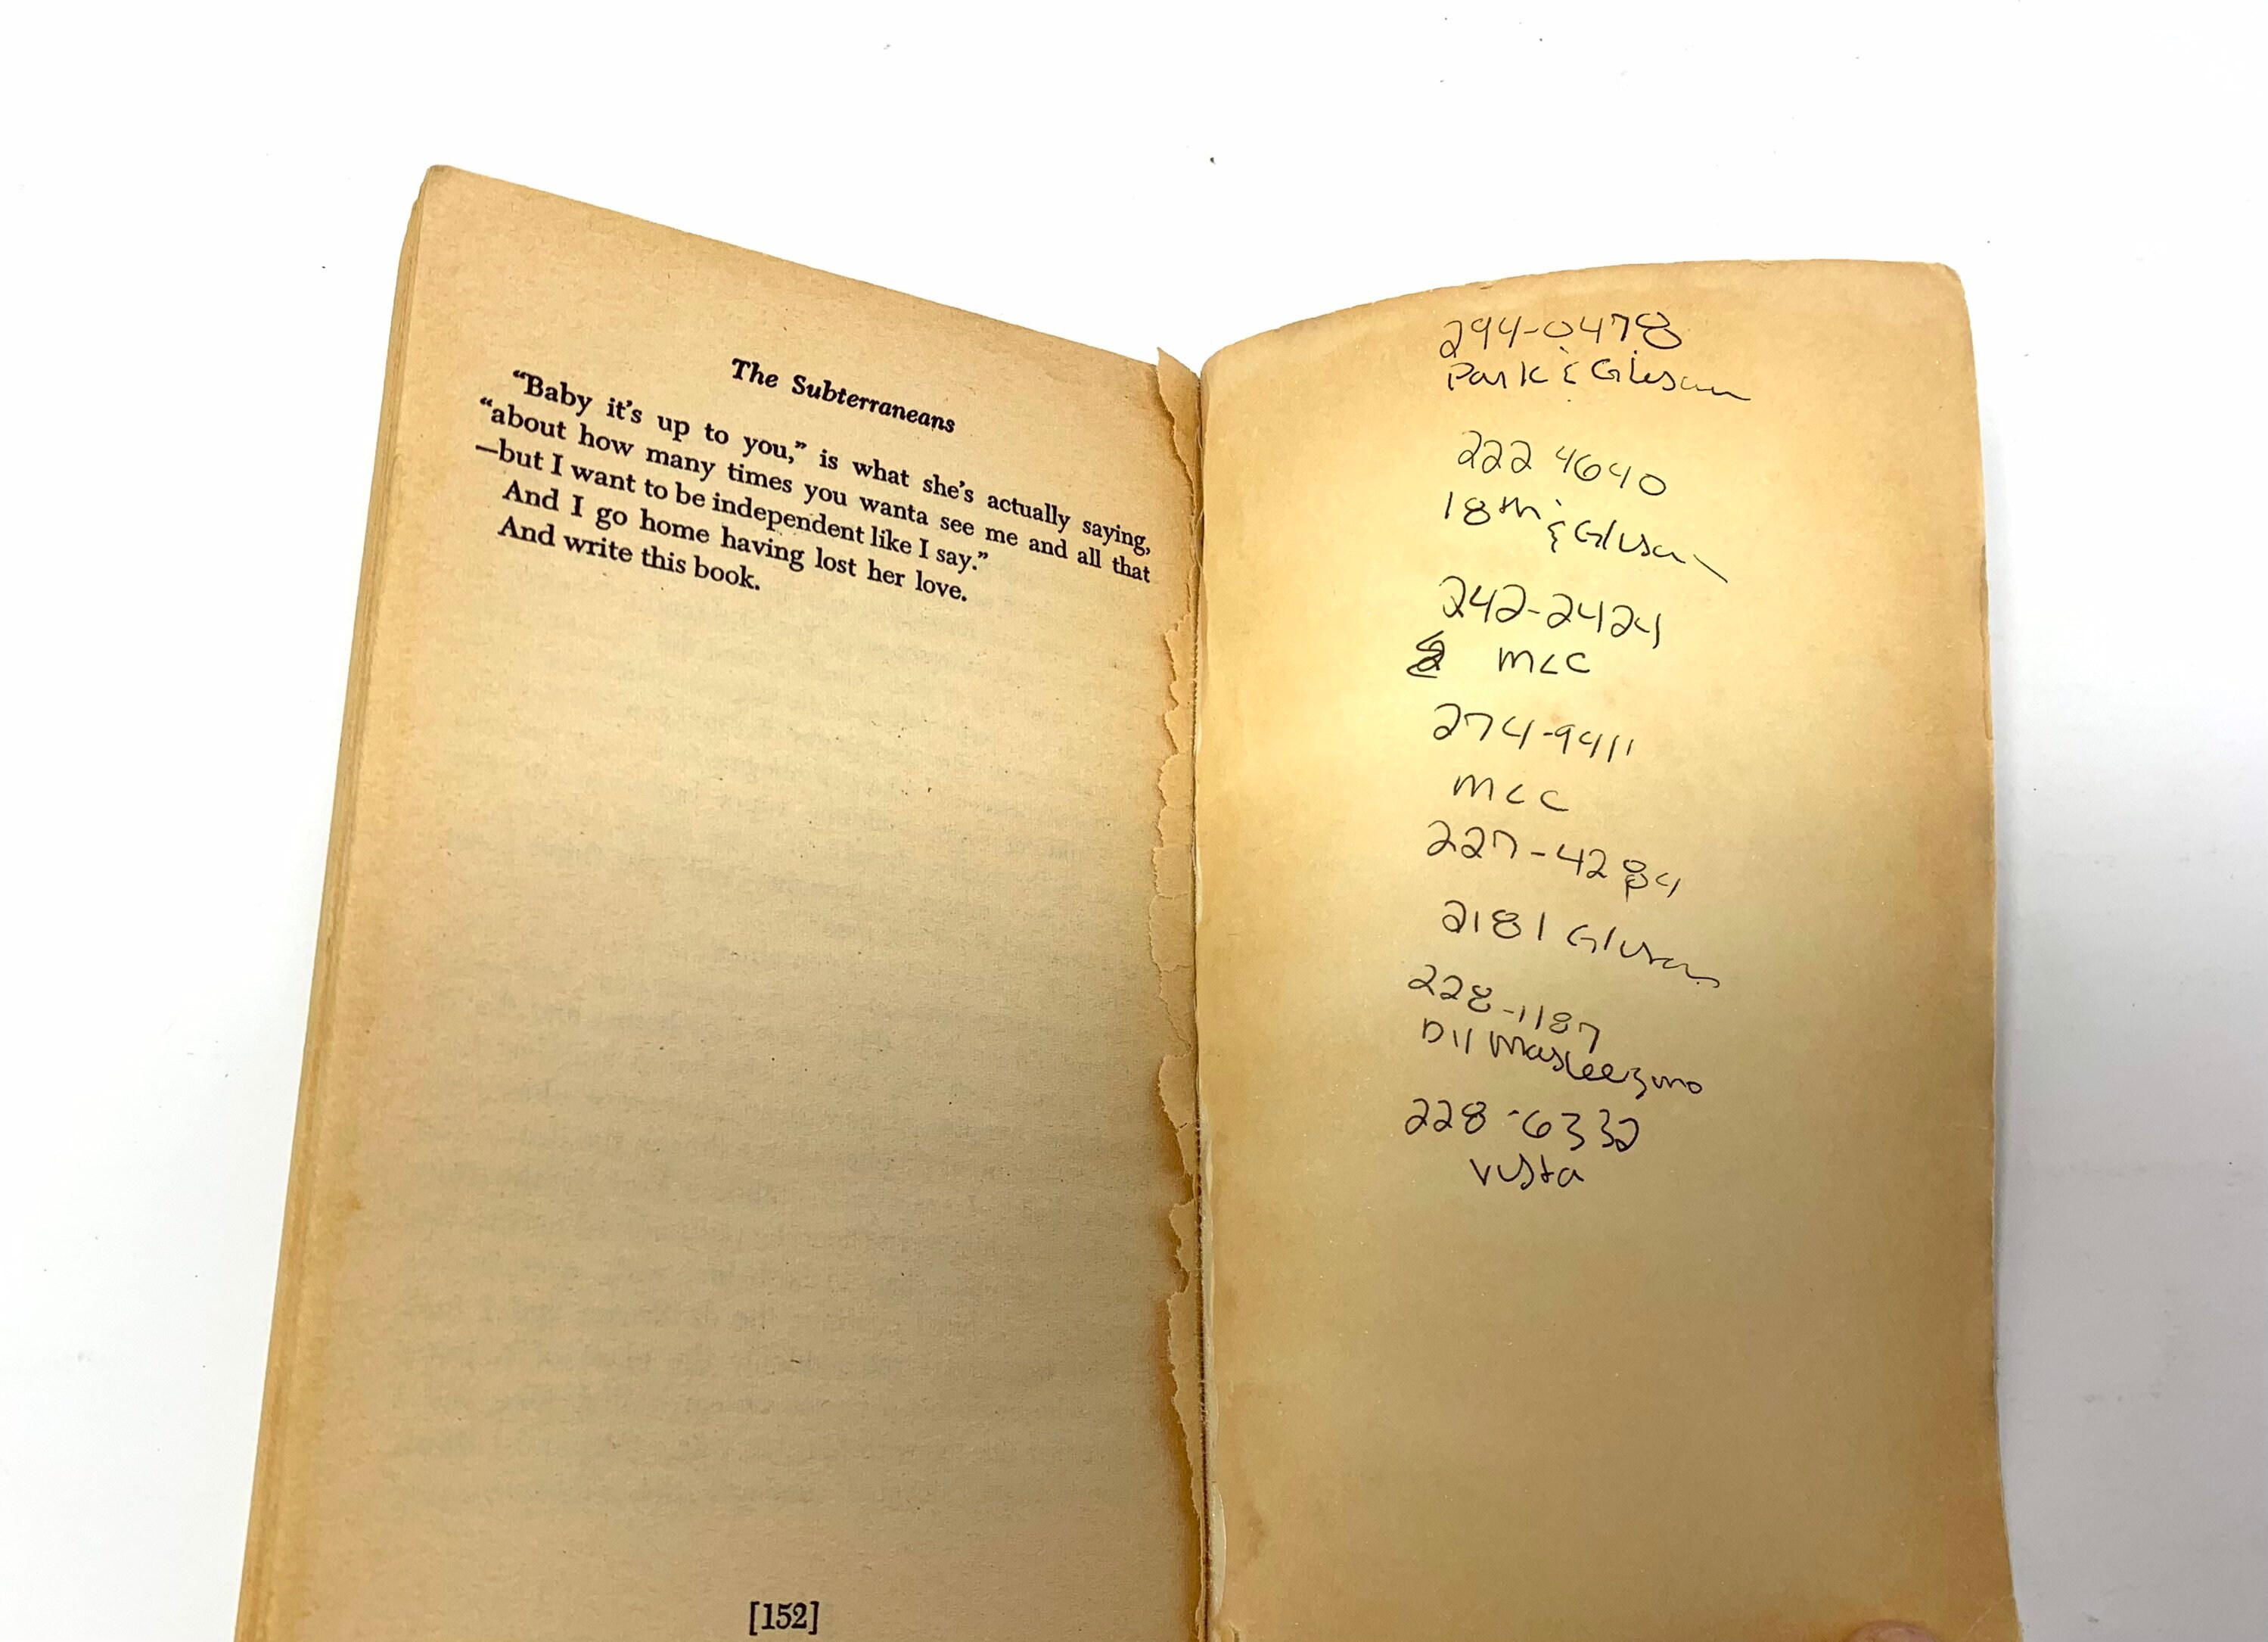 The Subterraneans
“Baby it’s up to you,” is what she’s actually saying,
“about how many times you wanta see me and all that
—but I want to be independent like I say.”
And I go home having lost her love.
And write this book.
[152]
294-0478
Park & Glisan
222 4640
18th & Glisan
242-2424
MLC
274-9411
MLC
227-4284
2181 Glisan
228-1187
228-6332
Vista